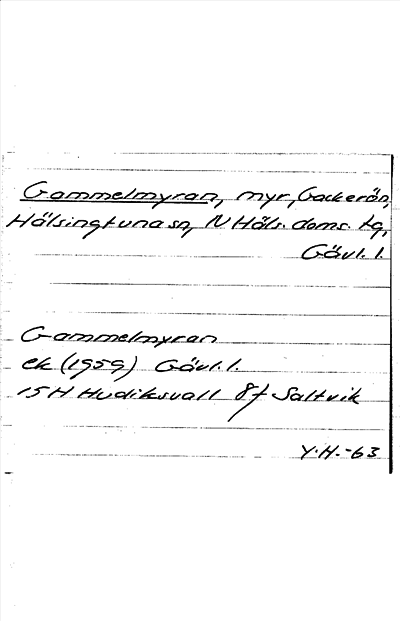 Gammelmyran, myr, Gackerön,
Hälsingtuna sn, N Häls. doms. tg,
Gävl. l.
Gammelmyran
ek (1959) Gävl. l.
15H Hudiksvall 8f Saltvik
Y.H.-63